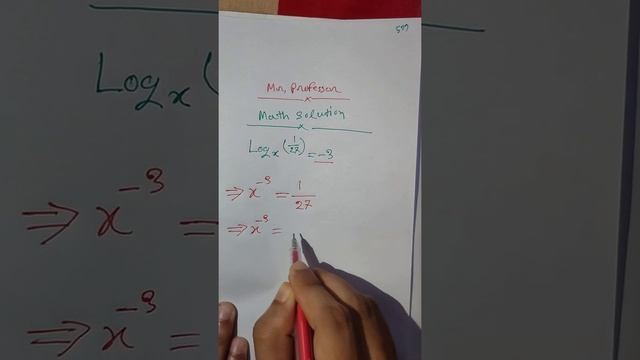 599
Mr, Professor
x
Math Solution
x
Log_x (1/27) = -3
⇒ x^-3 = 1/27
⇒ x^-3 =
Log_x (
⇒ x^-3
⇒ x^-3 =